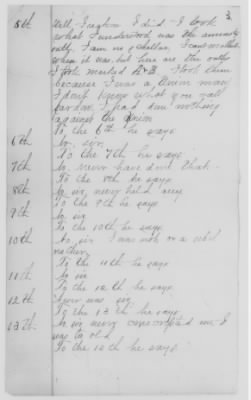 3.
5th Well, I reckon I did. I took
what I understood was the amnesty
oath, I am no scholar. I cannot tell
when it was, but here are the oaths
I took marked A & B. I took them
because I was a Union man
I don't know what you call
pardon. I had done nothing
against the Union
To the 6th he says
6th No sir.
To the 7th he says
7th No. Never have done that.
To the 8th he says
8th No sir, never held any
To the 9th he says
9th No sir
To the 10th he says
10th No sir I was not on a rebel
neither
To the 11th he says
11th No sir
To the 12th he says
12th Never was sir
To the 13th he says
13th No sir never conscripted me I
was too old
To the 14th he says